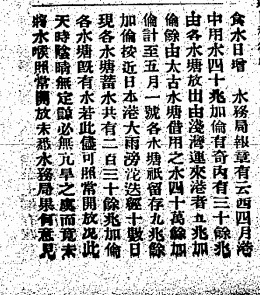 食水日增　水務局報章有云西四月港
中用水四十兆加倫有奇內有三十餘兆
由各水塘放出由淺灣運來港者九兆加
倫餘由太古水塘借用之水四十萬餘加
倫計至五月一號各水塘祇留存九兆餘
加倫按近日本港大雨滂沱迭經十數日
現各水塘蓄水共有二百三十餘兆加倫
各水塘既有水若此儘可照常開放况此
天時陰晴無定諒必無亢旱之虞而竟未
將水喉照常開放未悉水務局果何意見